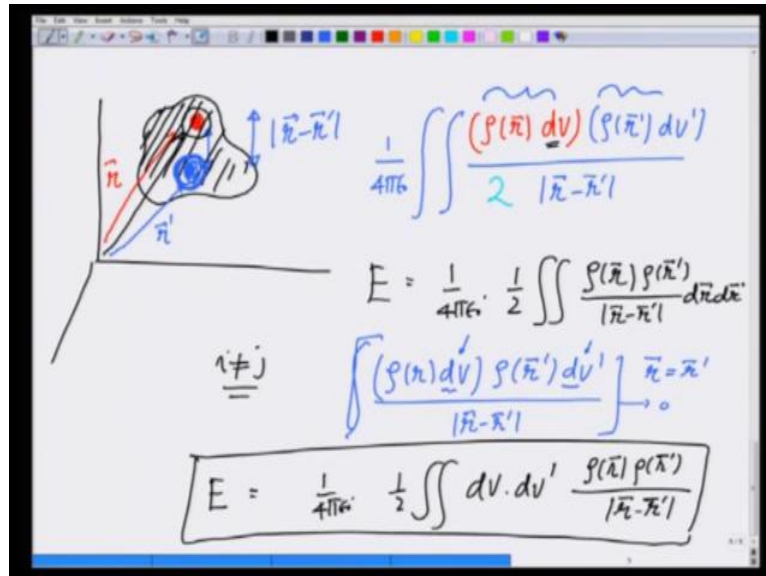 File Edit View Insert Actions Tools Help
B I
|r⃗-r⃗'|
r⃗
r⃗'
1/4πε₀ ∫∫ (ρ(r⃗) dv) (ρ(r⃗') dv') / 2 |r⃗-r⃗'|
E = 1/4πε₀ · 1/2 ∫∫ ρ(r⃗) ρ(r⃗') / |r⃗-r⃗'| dr⃗ dr⃗'
i≠j
∫ (ρ(r) dv) ρ(r⃗') dv' / |r⃗-r⃗'| ] r⃗ = r⃗' → 0
E = 1/4πε₀ 1/2 ∫∫ dv. dv' ρ(r⃗) ρ(r⃗') / |r⃗-r⃗'|